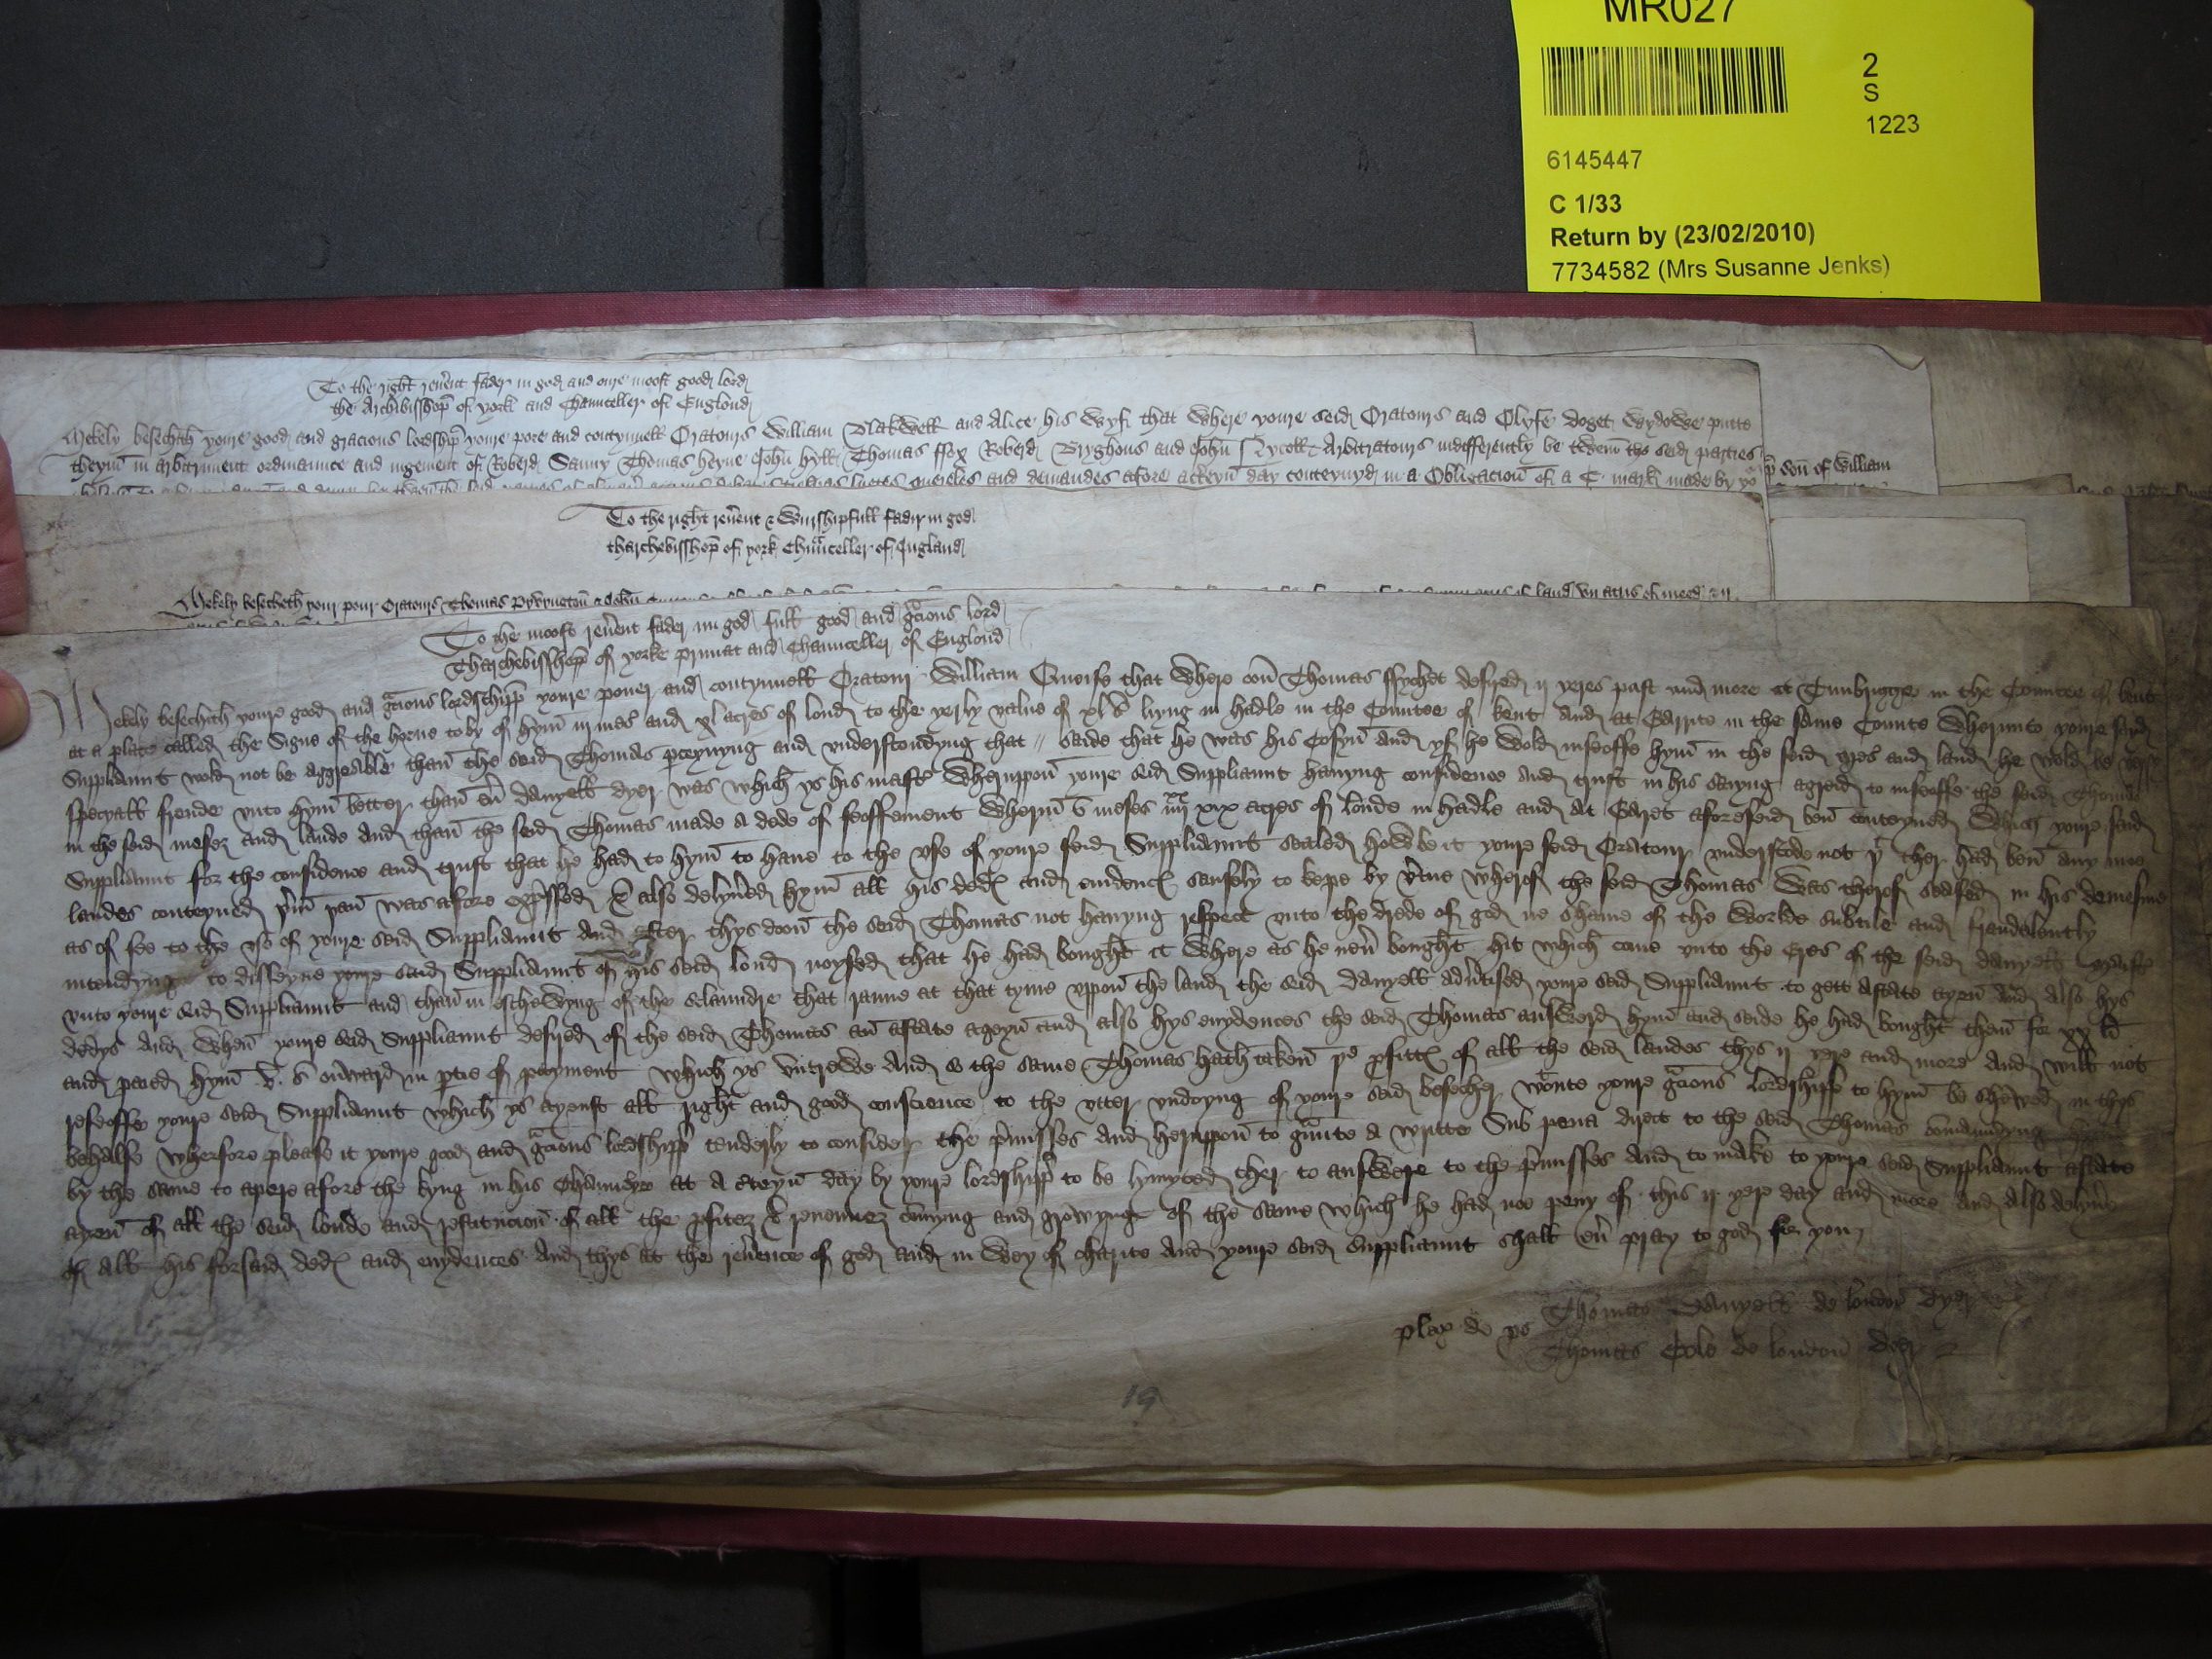 MR027
2
S
1223
6145447
C 1/33
Return by (23/02/2010)
7734582 (Mrs Susanne Jenks)
To the right reu͂ent fader in god and oure moost good lord
the Archibisshop̃ of york and Chaunceller of Englond
Mekely besechith youre good and gracious lordship youre pore and contynuell Oratours William Blakwell and Alice his Wyf that Where youre seid Oratours and Olyfe doget Wydowe putte
theym̃ in arbitrment ordinaunce and iugement of Roberd Thomas heyne John hyll Thomas ffox Roberd Bryghous and John Arbitratours indifferently be twen͂ the seid parties
and demandes afore a day conteynyd in a Obligacion͂ of a C mark made by yo
son͂ of William
To the right reu͂ent & Wurshipfull fadir in god
tharchebisshop̃ of york Chaũceller of Ingland
Mekely besecheth your pour Oratours Thomas
To the moost reu͂ent fader in god full good and gr̃acious lord
Tharchebisshop̃ of yorke primat and Chaunceller of Englond
Mekely besechith youre good and gr̃acious lordschipp youre pouer and contynuell Oratour William that Where oon͂ Thomas ffychet desired ij yeres past and more at Tunbrigge in the Countee of kent
at a place called the Signe of the horne to by of hym͂ iij mes̃ and xl acres of lond to the yerly value of xl s̃ liyng in hadle in the Countee of kent And at in the same Counte Wherunto youre said
Suppliaunt wold not be aggreable than͂ the seid Thomas p̃ceyuyng and vnderstondyng that // saide that he was his Cosyn͂ and yf he Wold infeoffe hym͂ in the seid and land he wold be
specyall frende vnto hym͂ better than͂ eu͂ danyell dyer was which ys his mast͂ Wheruppon͂ youre seid Suppliaunt hauyng confidence And trust in his seiyng agreid to infeoffe the seid Thomas
in the seid mesez and lande And than͂ the seid Thomas made a dede of feoffement Wherin͂ meses acres of londe in hadle and At Garet aforeseid ben͂ conteyned Which youre said
Suppliaunt for the confidence and trust that he had to hym͂ to haue to the vse of youre seid Suppliaunt sealed howe be it youre seid Oratour vnderstode not yͭ ther had ben͂ any moo
landes conteyned þ͂in þan͂ was afore exp̃ssed & also delyu͂ed hym͂ all his and sauefely to kepe by v͂tue wherof the seid Thomas Was therof seased in his demesne
as of fee to the vse of youre seid Suppliaunt And After thys doon͂ the seid Thomas not hauyng respect vnto the drede of god ne shame of the Worlde subtile and fraudelently
intendyng to disseyue youre said Suppliaunt of his seid lond noysed that he had bought it Where as he neu͂ bought hit which come vnto the Eres of the seid danyell
vnto youre seid Suppliaunt and than͂ in eschewyng of the sclaundre that ranne at that tyme vppon͂ the land the seid danyell adu͂tised youre seid Suppliaunt to gett astate ayen͂ And also hys
dedys And When͂ youre seid Suppliaunt desired of the seid Thomas an͂ astate ageyn͂ and also hys euydences the seid Thomas answerd hym͂ and seide he had bought them͂ for xx li͂
and paied hym͂ v. s̃ onward in p̃tie of payment which ys vntrewe And so the same Thomas hath taken͂ þe p̃fittȝ of all the seid landes thys ij yere and more And will not
refeoffe youre seid Suppliaunt which ys ayenst all right and good conscience to the vtter vndoyng of youre seid besecher Wͭoute youre gr̃acious lordshipp to hym͂ be shewed in thys
behalfe Wherfore please it youre good and gr̃acious lordshipp tenderly to consider the p̃misses And heruppon͂ to gr̃unte a writte Sub pena direct to the seid Thomas comaundyng
by the same to apere afore the kyng in his Chauncerye at a c͂teyn͂ day by youre lordshipp to be lymyted ther to answere to the p̃misses And to make to youre seid Suppliaunt astate
ayen͂ of all the seid londe and restitucion͂ of all the p̃fitez & reuenuez comyng and growyng of the same which he had noo peny of this ij yere day and more And also delyu͂e
of all his forsaid and euydences And thys at the reu͂ence of god and in Wey of charite And youre seid Suppliaunt shall eu͂ pray to god for you
pleg̃ de ꝓs̃ Thomas Danyell de london͂ dyer
Thomas Cole de london͂ dyer
19